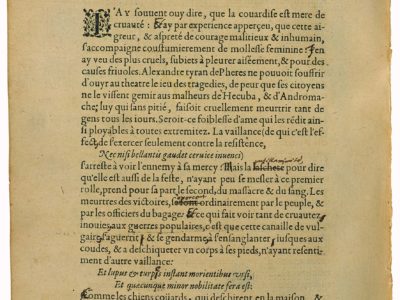 I'AY souuent ouy dire, que la couardise est mere de
cruauté : & ay par experience apperçeu, que cette ai-
greur, & aspreté de courage malitieux & inhumain,
s'accompaigne coustumierement de mollesse feminine : I'en
ay veu des plus cruels, subiets à pleurer aiséement, & pour des
causes friuoles. Alexandre tyran de Pheres ne pouuoit souffrir
d'ouyr au theatre le ieu des tragedies, de peur que ses citoyens
ne le vissent gemir aus malheurs de Hecuba, & d'Androma-
che; luy qui sans pitié, faisoit cruellement meurtrir tant de
gens tous les iours. Seroit-ce foiblesse d'ame qui les rédit ain-
si ployables à toutes extremitez. La vaillance (de qui c'est l'ef-
fect, de s'exercer seulement contre la resistence,
Nec nisi bellantis gaudet ceruice iuuenci)
s'arreste à voir l'ennemy à sa mercy : Mais la pour dire
qu'elle est aussi de la feste, n'ayant peu se mesler à ce premier
rolle, prend pour sa part le second, du massacre & du sang. Les
meurtres des victoires, ordinairement par le peuple, &
par les officiers du bagage : & ce qui fait voir tant de cruautez
inouies aux guerres populaires, c'est que cette canaille de vul-
gaire s'aguerrit, & se gendarme, à s'ensanglanter iusques aux
coudes, & a deschiqueter vn corps à ses pieds, n'ayant resenti-
ment d'autre vaillance:
Et lupus & turpes instant morientibus vrsi,
Et quæcunque minor nobilitate fera est:
Comme les chiens coüards, qui deschirent en la maison, &